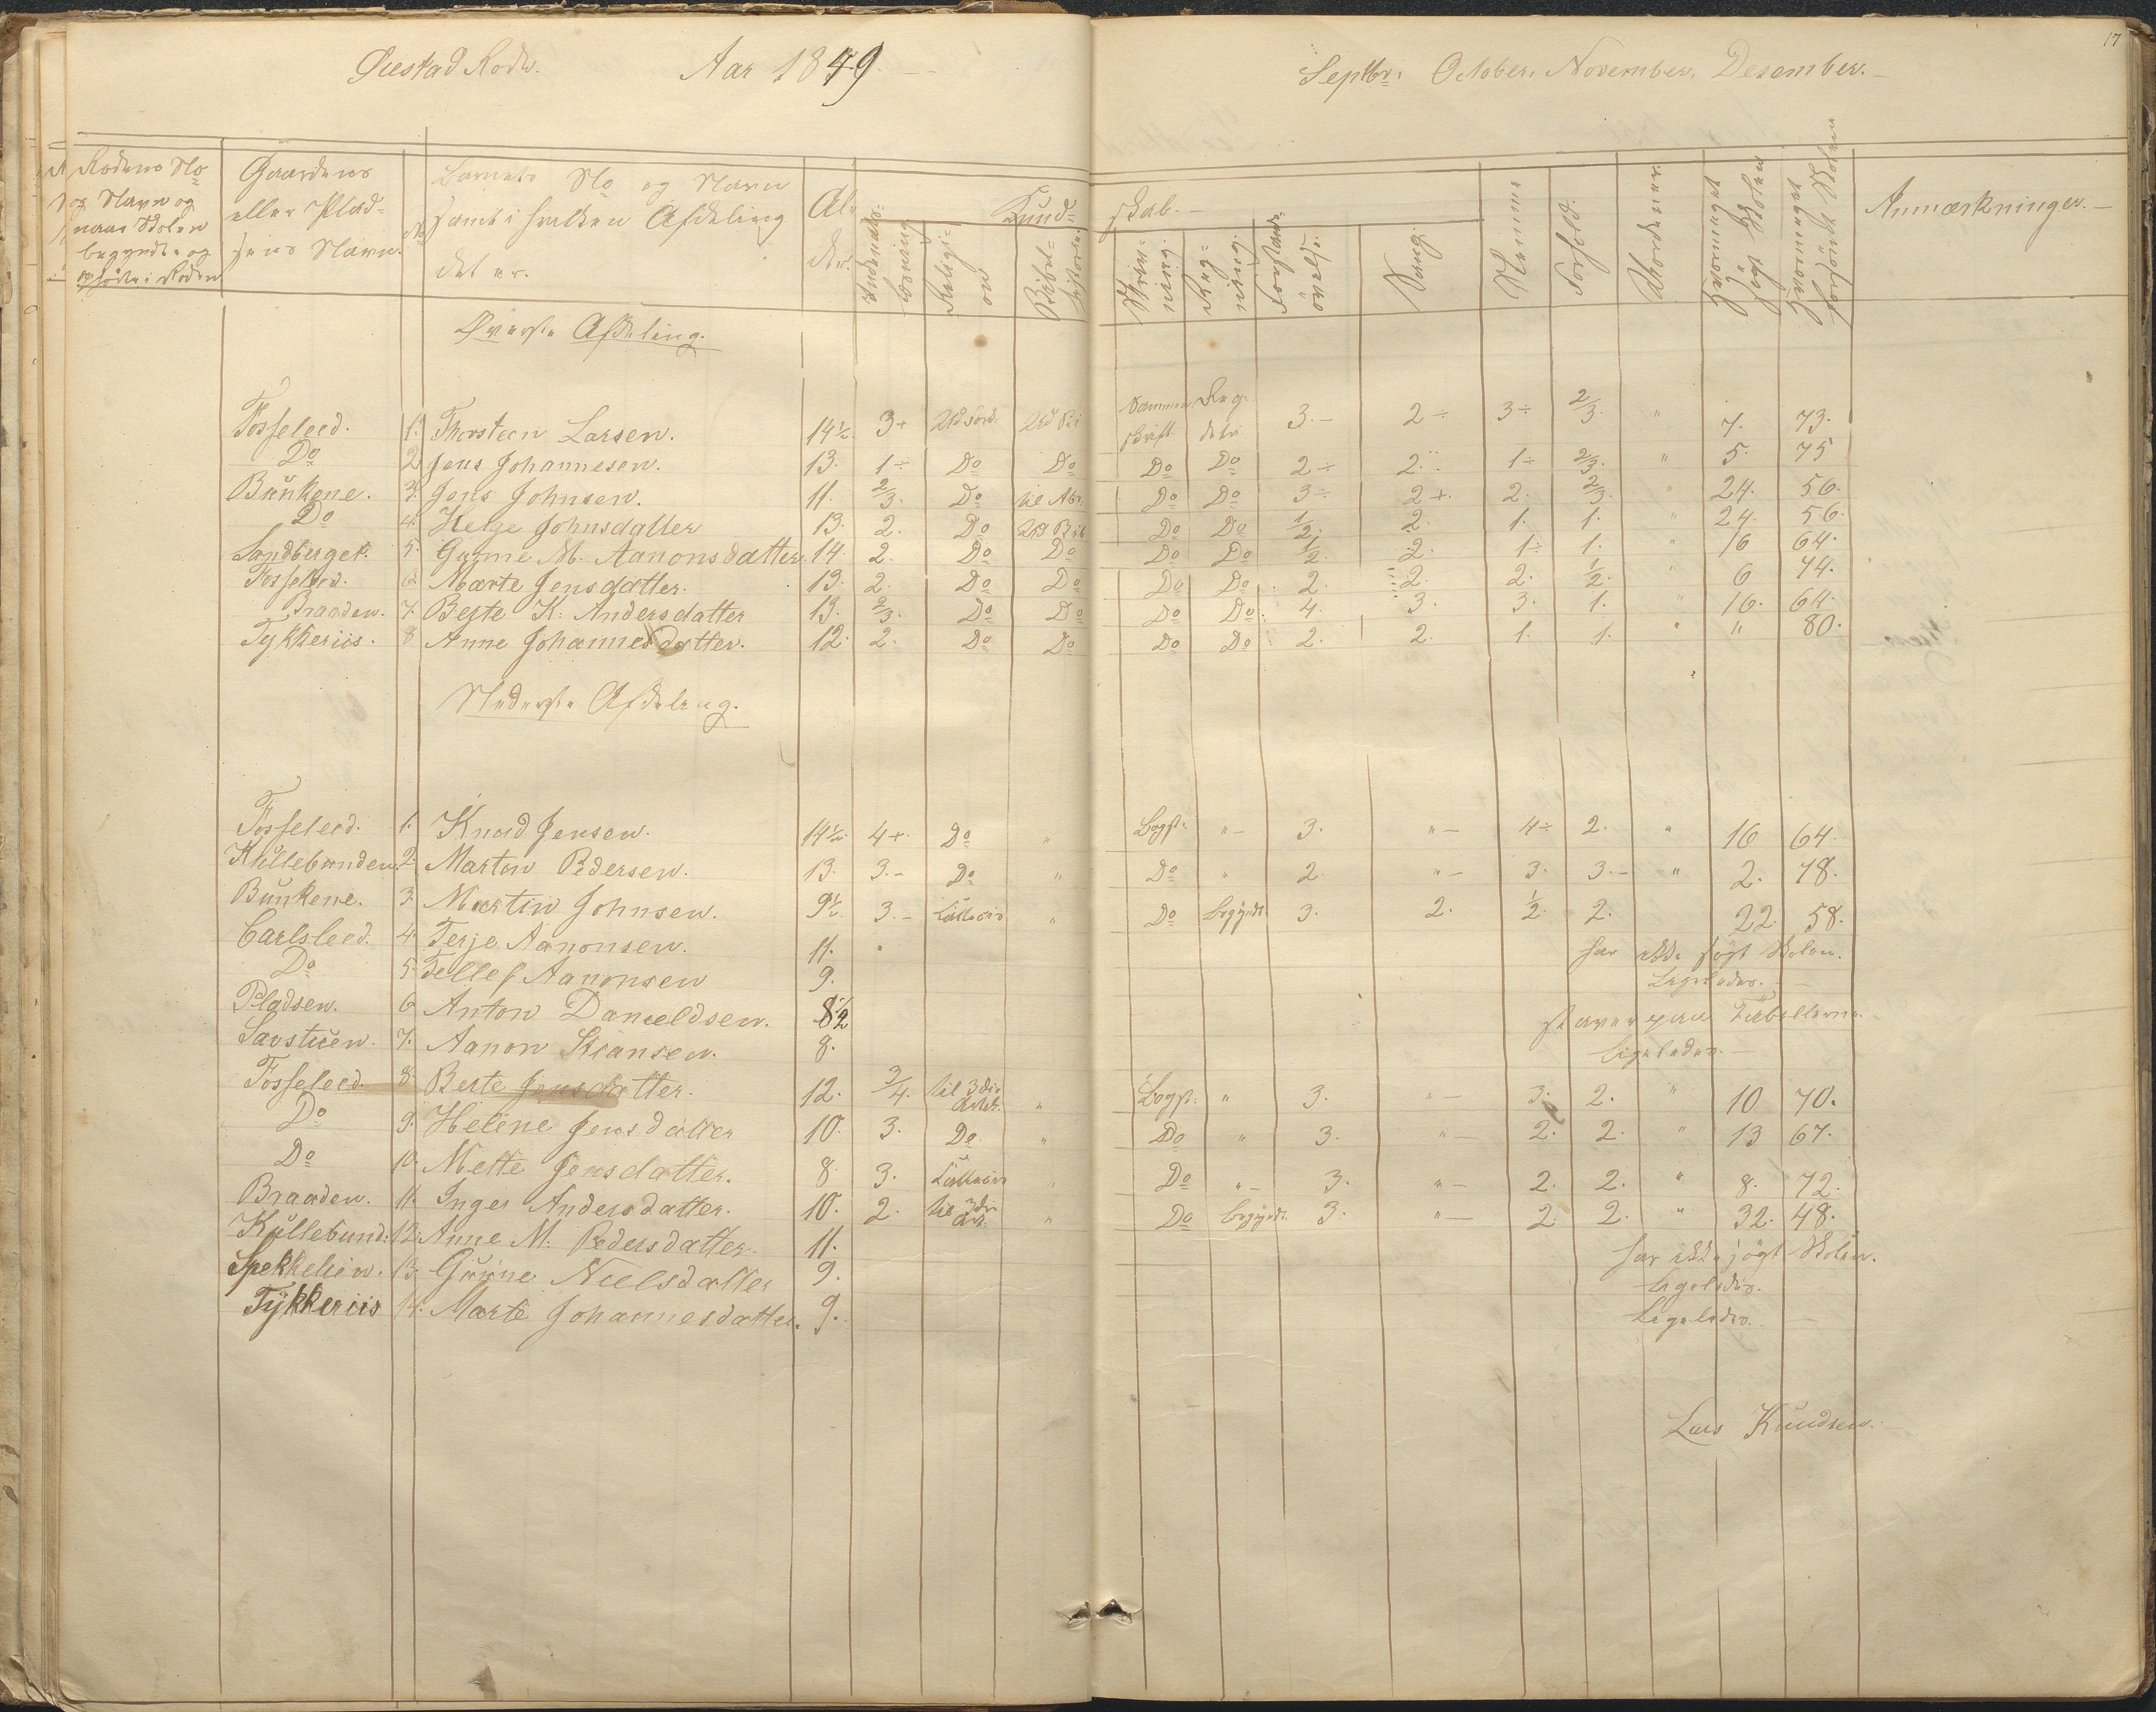 Øiestad Rode. Aar 1849. Septbr: October, November, Desember. 17
Rodens No og Navn og naar Skolen begyndte og ophørte i Roden
Gaardens eller Pladsens Navn.
No
Barnets No og Navn samt i hvilken Afdeling det er.
Alder.
Kundskab.
Indenads-Læsning
Religion
Bibelhistorie.
Skrivning.
Regning.
Forstands-øvelse.
Sang.
Nemme
Forhold.
Skoledage
Hvormeget søgt Skolen
Hvormeget forsømt Skolen
Anmærkninger.
Øverste Afdeling.
Fosseleed. 1. Thorsteen Larsen. 14½. 3+ Sammenskrift Reg. 3.- 2÷ 3÷ 2/3. " 7. 73.
Do 2 Jens Johannesen. 13. 1÷ Do Do Do Do 2÷ 2÷ 1÷ 2/3. " 5. 75
Bunkene. 3. Jens Johnsen. 11. 2/3. Do Do Do 3÷ 2+. 2. 2/3. " 24. 56.
Do 4. Helge Johnsdatter 13. 2. Do Do Do 1/2. 2. 1. 1. " 24. 56.
Sandberget. 5. Gunne M. Aanonsdatter. 14. 2. Do Do Do Do 1/2. 2. 1÷ 1. " 16 64.
Fosseleed. 6 Marte Jensdatter. 13. 2. Do Do Do Do 2. 2. 2. 1/2. " 6 74.
Braaden. 7. Berte K: Andersdatter 13. 2/3. Do Do Do Do 4. 3. 3. 1. " 16. 64.
Tykkeriis. 8 Anne Johannesdatter. 12. 2. Do Do Do Do 2. 2. 1. 1. " " 80.
Nederste Afdeling.
Fosseleed. 1. Knud Jensen. 14½. 4+. Do " Bogst: "- 3. "- 4÷ 2. " 16 64.
Kullebunden. 2. Marten Pedersen. 13. 3.- Do " Do " 2. "- 3. 3.- " 2. 78.
Bunkene. 3. Martin Johnsen. 9½. 3.- " Do begyndt. 3. 2. 1/2. 2. 22. 58.
Carlsleed. 4. Terje Aanonsen. 11. har ikke søgt Skolen.
Do 5. Tellef Aanonsen 9. Ligeledes.
Pladsen. 6 Anton Danieldsen. 8½ staver paa Tabellerne.
Savstuen. 7. Aanon Stiansen. 8. Ligeledes.
Fosseleed. 8 Berte Jensdatter. 12. 3/4. til 3die Artik. " Bogst: " 3. "- 3. 2. " 10 70.
Do 9. Helene Jensdatter 10. 3. Do " Do " 3. "- 2. 2. " 13 67.
Do 10. Mette Jensdatter. 8. 3. " Do "- 3. "- 2. 2. " 8. 72.
Braaden. 11. Inger Andersdatter. 10. 2. til 3die Art. " Do begyndt. 3. "- 2. 2. " 32. 48.
Kullebund: 12. Anne M. Pedersdatter. 11. har ikke søgt Skolen.
Spekkelien. 13. Gunne Nielsdatter 9. Ligeledes.
Tykkeriis 14. Marte Johannesdatter. 9. Ligeledes.
Lars Knudsen.